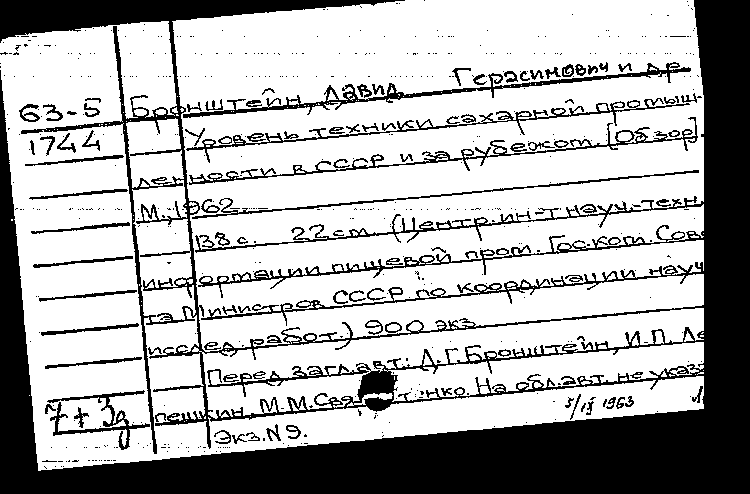 63-5 Бронштейн, Давид Герасимович и др.
1744 Уровень техники сахарной промыш-
ленности в СССР и за рубежом. [Обзор].
М., 1962.
138 с. 22 см. (Центр. ин-т науч.-техн.
информации пищевой пром. Гос. ком. Сове
та Министров СССР по координации науч
исслед. работ.) 900 экз.
Перед загл. авт.: Д.Г. Бронштейн, И.П. Ле
пешкин, М.М. Свя т нко. На обл. авт. не указа
7 + 3д 5/IX 1963
Экз. N 9.